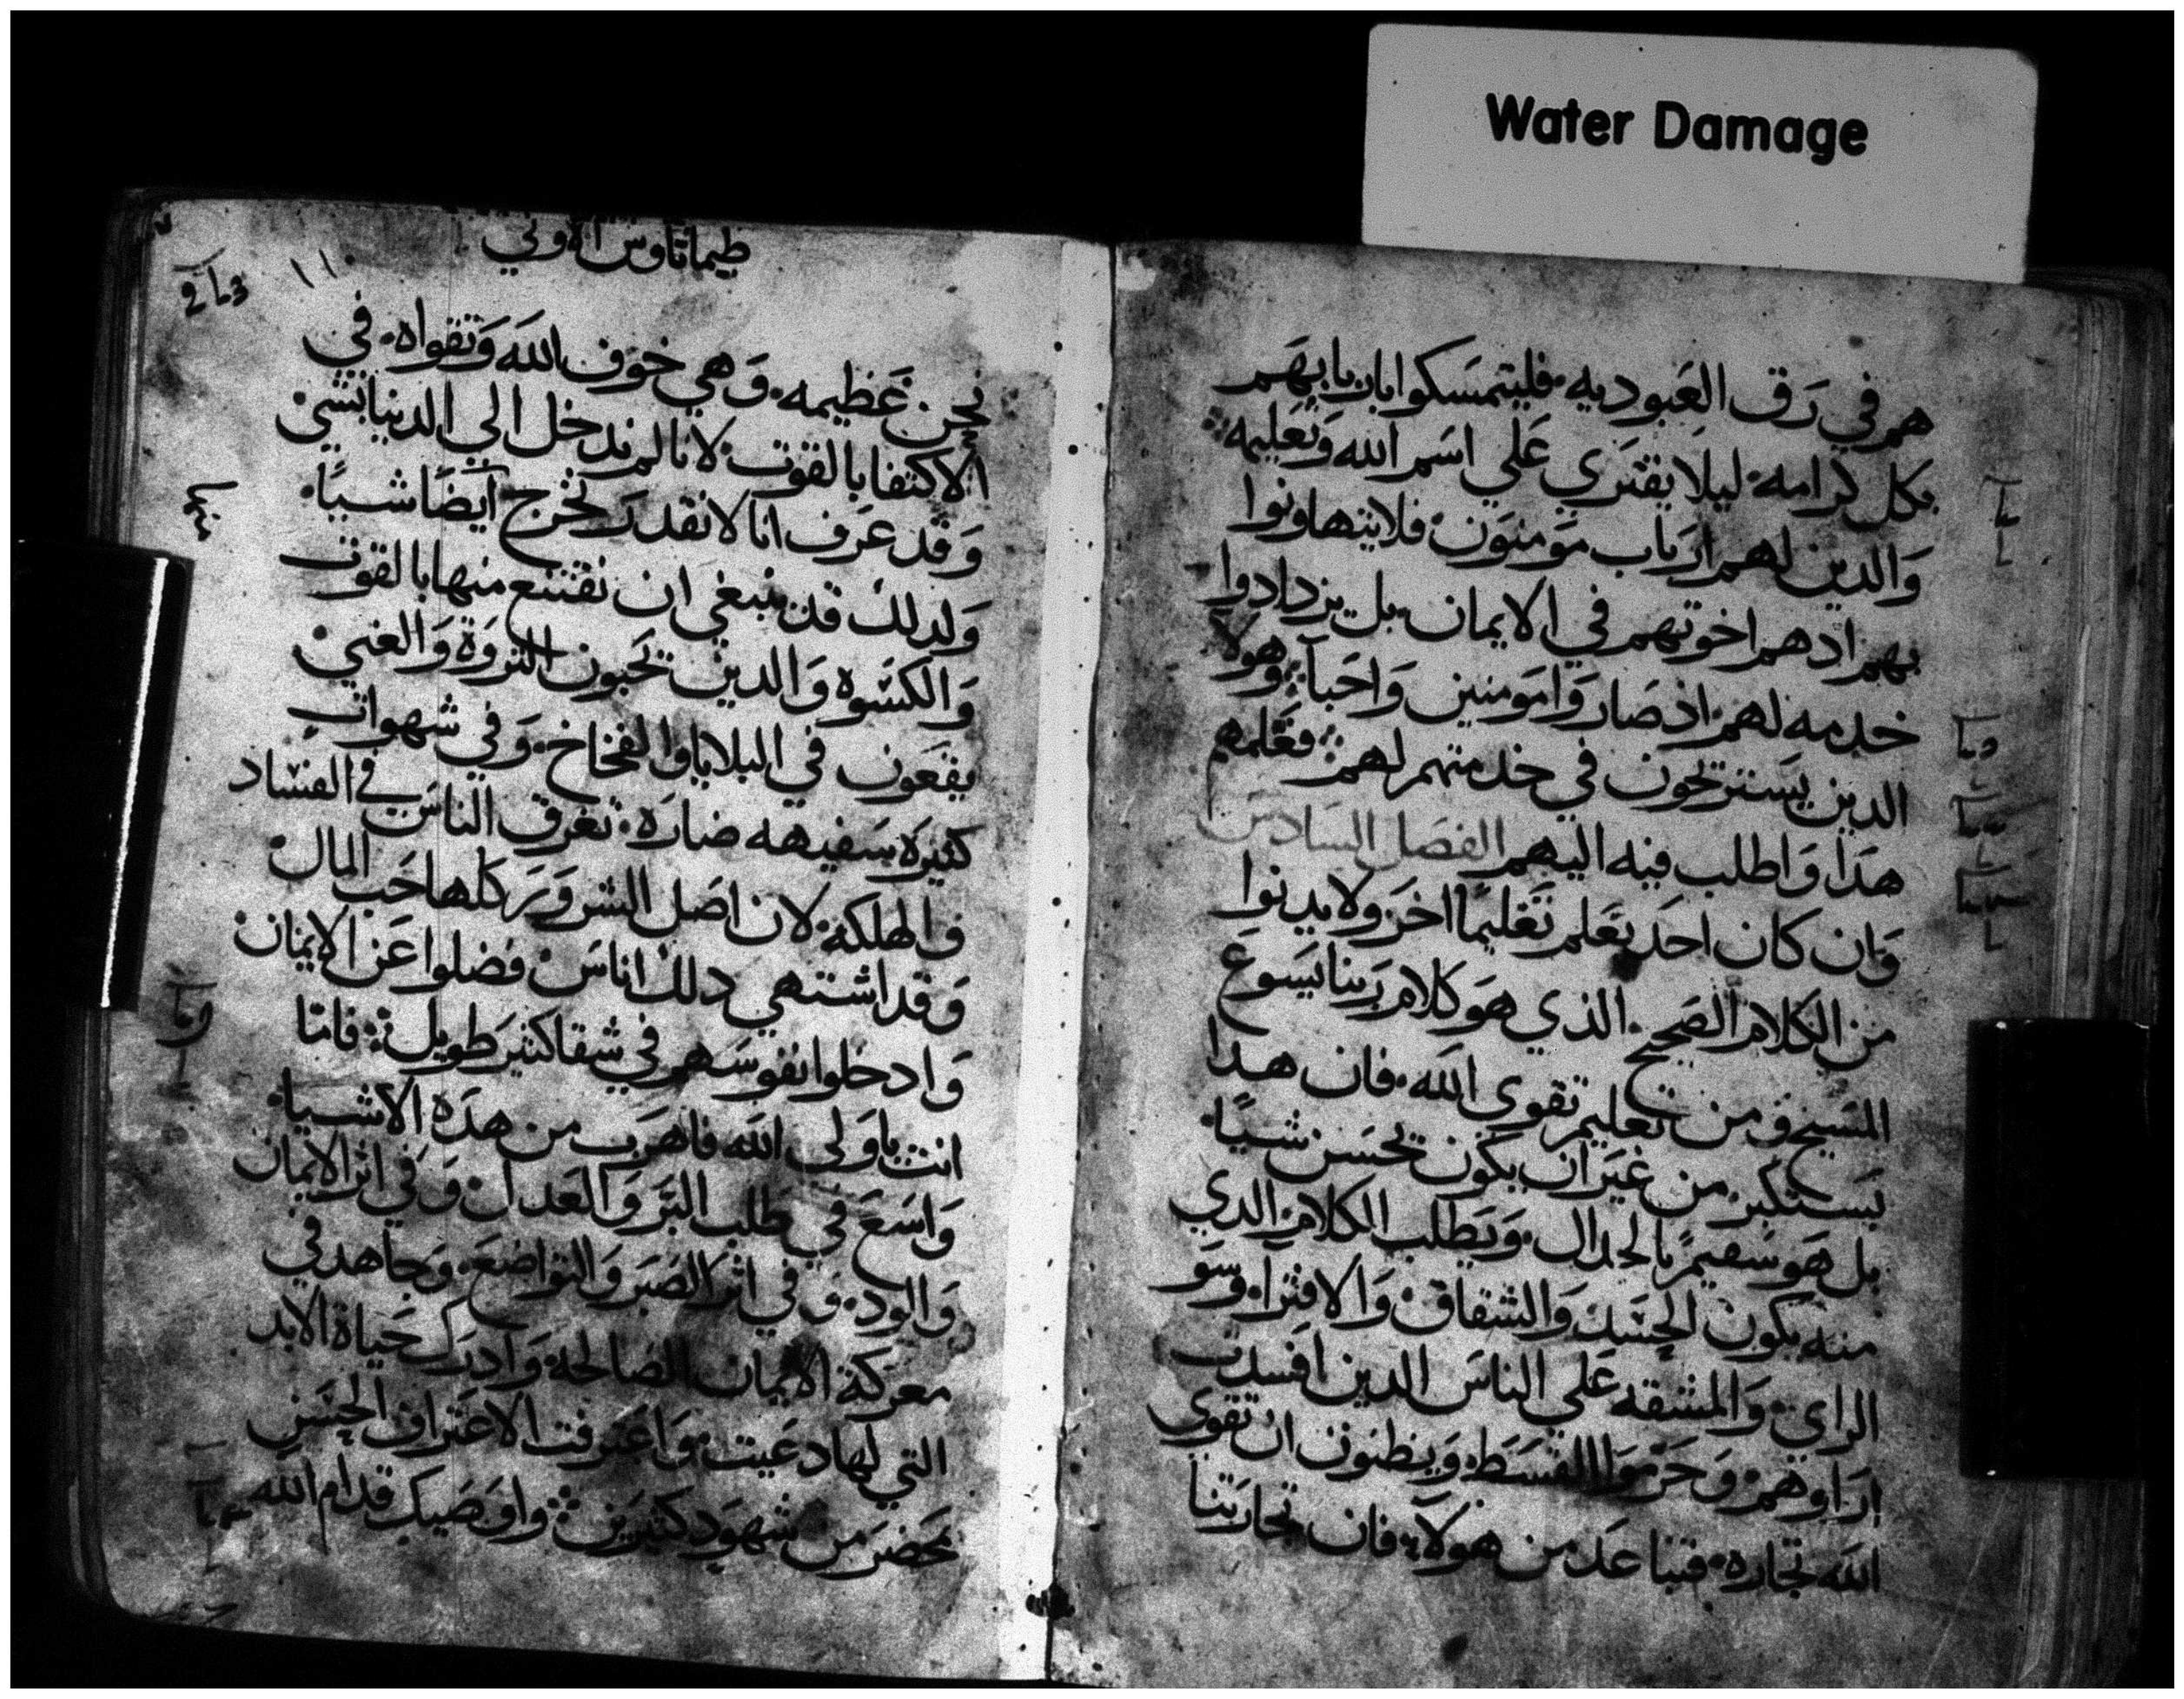 Water Damage
هم في رق العبوديه فليتمسكوا باربابهم
بكل كرامه ليلا يفتري علي اسم الله وتعليمه
والدين لهم ارباب مومنون فلا يتهاونوا
بهم ادهم اخوتهم في الايمان بل يزدادوا
خدمه لهم اد صاروا مومنين واحبآ وهولا
الدين يستريحون في خدمتهم لهم فعلمهم
هدا واطلب فيه اليهم الفصل السادس
وان كان احد يعلم تعليمًا اخر ولا يدنوا
من الكلام الصحيح الذي هو كلام ربنا يسوع
المسيح ومن تعليم تقوي الله فان هدا
يستكبر من غير ان يكون يحسن شيًا
بل هو سقيم بالجدال ويطلب الكلام الدي
منه يكون الحسد والشقاق والافترآ وسو
الراي والمشقه علي الناس الدين افسدت
اراوهم وحرموا القسط ويظنون ان تقوي
الله تجاره فتباعد من هولآ فان تجارتنا
طيماتاوس الاولي
١١
نحن عظيمه وهي خوف الله وتقواه في
الاكتفا بالقوت لانا لم ندخل الي الدنيا بشي
وقد عرف انا لا نقدر نخرج ايضًا شيًا
ولدلك قد ينبغي ان نقتنع منها بالقوت
والكسوه والدين يحبون الثروة والغني
يقعون في البلايا والفخاخ وفي شهوات
كثيرة سفيهه ضارة تغرق الناس في الفساد
والهلكه لان اصل الشرور كلها حب المال
وقد اشتهي دلك اناس فضلوا عن الايمان
وادخلوا نفوسهم في شقا كثير طويل فامّا
انت ياولي الله فاهرب من هده الاشيا
واسع في طلب البر والعدل وفي اثر الايمان
والود وفي اثر الصبر والتواضع وجاهد في
معركة الايمان الصالحة وادرك حياة الابد
التي لها دعيت واعترفت الاعتراف الحسن
بمحضر من شهود كثيرين واوصيك قدام الله